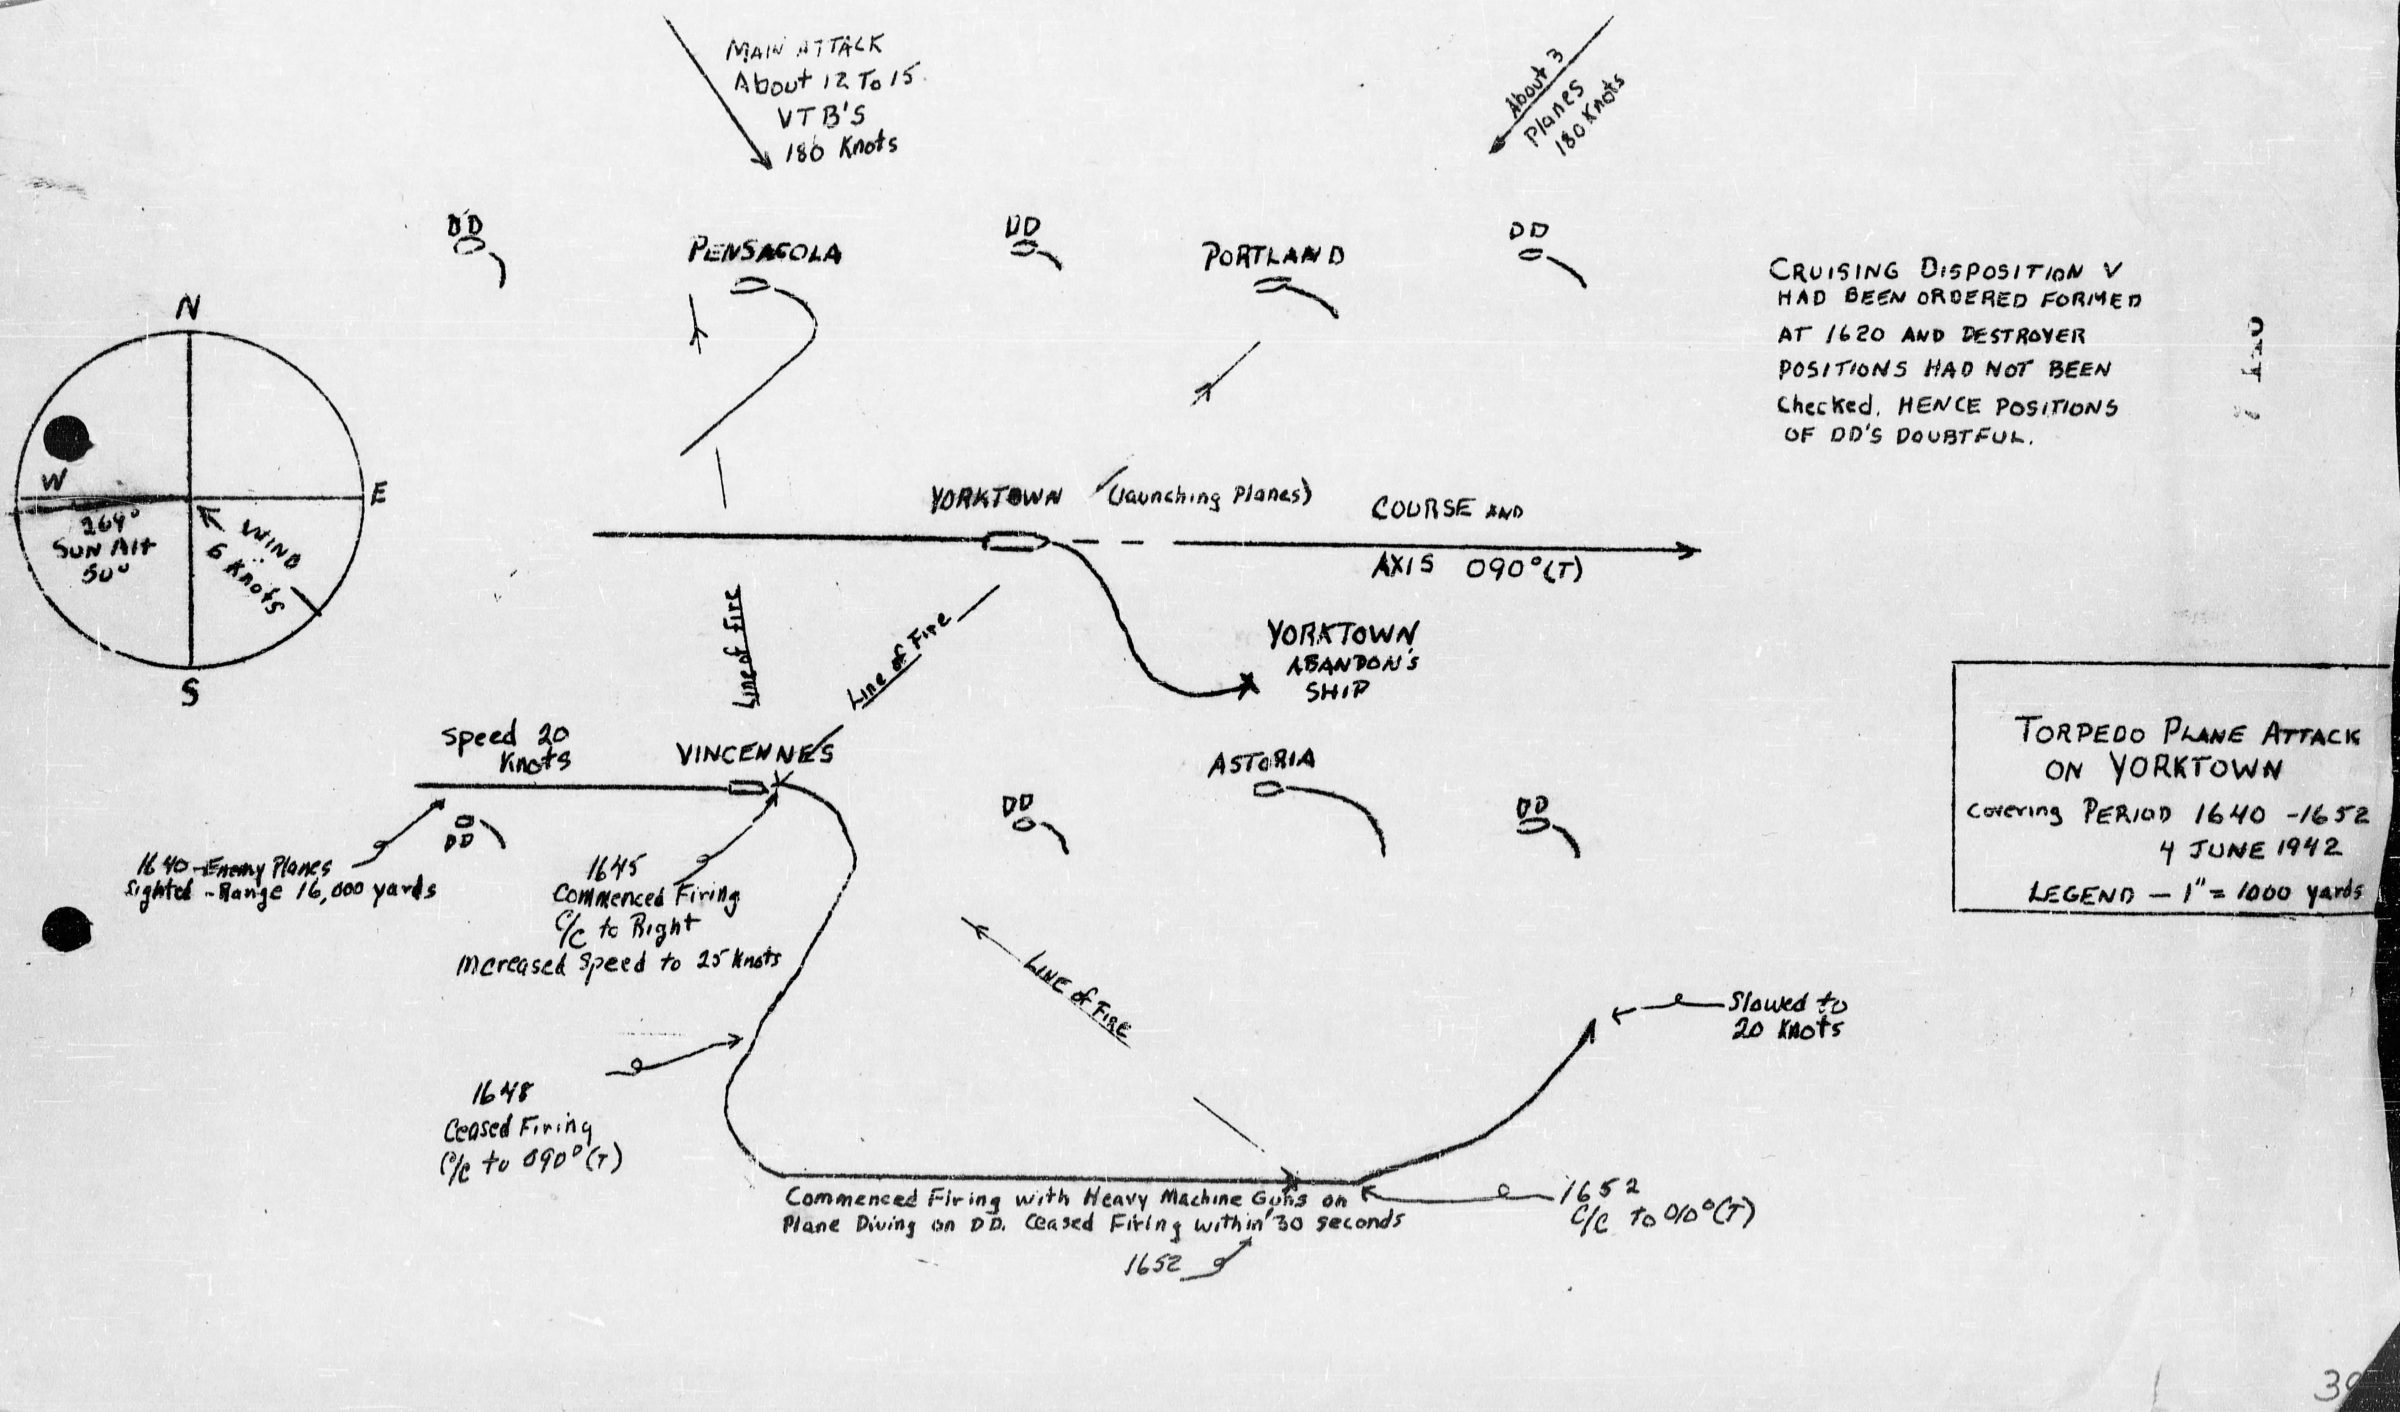 MAIN ATTACK
About 12 To 15
VTB'S
180 Knots
About 3
Planes
180 Knots
DD
PENSACOLA
DD
PORTLAND
DD
CRUISING DISPOSITION V
HAD BEEN ORDERED FORMED
AT 1620 AND DESTROYER
POSITIONS HAD NOT BEEN
Checked. HENCE POSITIONS
OF DD'S DOUBTFUL.
N
W
E
S
269°
SUN Alt
50°
WIND
6 Knots
YORKTOWN
(launching Planes)
COURSE AND
AXIS 090°(T)
Line of Fire
Line of Fire
YORKTOWN
ABANDON'S
SHIP
Speed 20
Knots
VINCENNES
ASTORIA
DD
DD
DD
1640-Enemy Planes
Sighted - Range 16,000 yards
1645
Commenced Firing
C/C to Right
Increased Speed to 25 Knots
TORPEDO PLANE ATTACK
ON YORKTOWN
Covering PERIOD 1640 -1652
4 JUNE 1942
LEGEND - 1" = 1000 yards
LINE of FIRE
Slowed to
20 Knots
1648
Ceased Firing
C/C to 090°(T)
Commenced Firing with Heavy Machine Guns on
Plane Diving on DD. Ceased Firing within 30 seconds
1652
1652
C/C TO 010°(T)